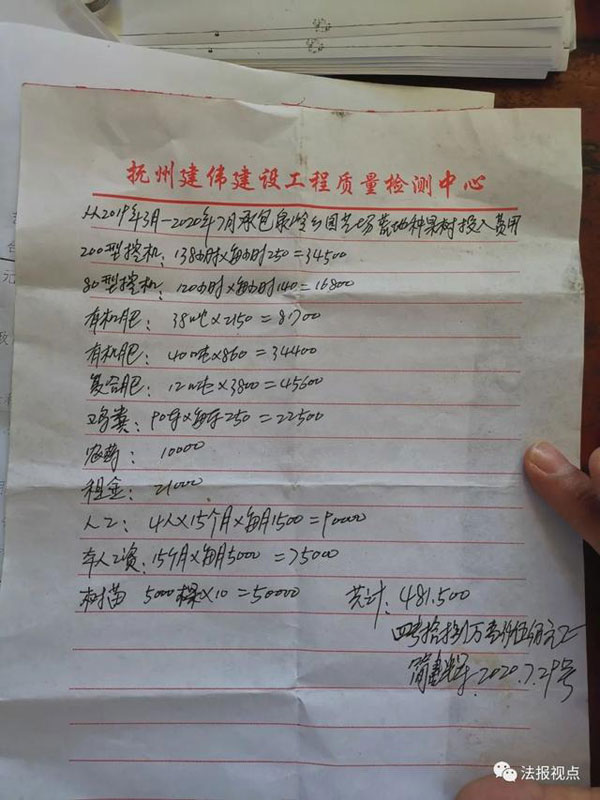 抚州建伟建设工程质量检测中心
从2019年3月-2020年7月承包泉岭乡园艺场荒地种果树投入费用
200型挖机：138小时×每小时250=34500
80型挖机：120小时×每小时140=16800
有机肥：38吨×2150=81700
有机肥：40吨×860=34400
复合肥：12吨×3800=45600
鸡粪：90车×每车250=22500
农药：10000
租金：21000
人工：4人×15个月×每月1500=90000
本人工资：15个月×每月5000=75000
树苗 5000棵×10=50000 共计：481.500
2020.7.29号
法报视点